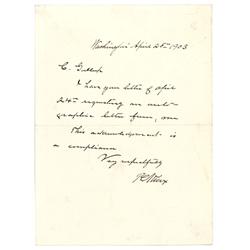 Washington April 25th 1903
C.
I have your letter of April
24th requesting an auto-
graphic letter from me
This acknowledgement is
a compliance
Very respectfully
P C Knox